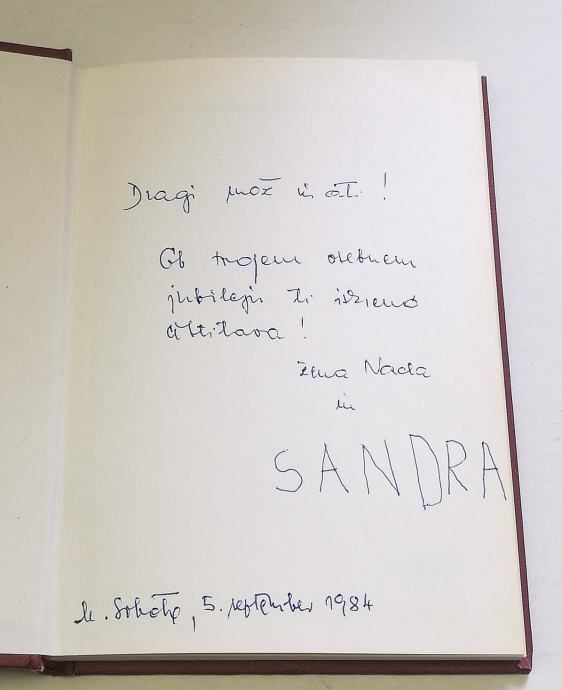 Dragi mož in ati!
Ob tvojem osebnem
jubileju ti iskreno
čestitava!
žena Nada
in
SANDRA
M. Sobota, 5. september 1984